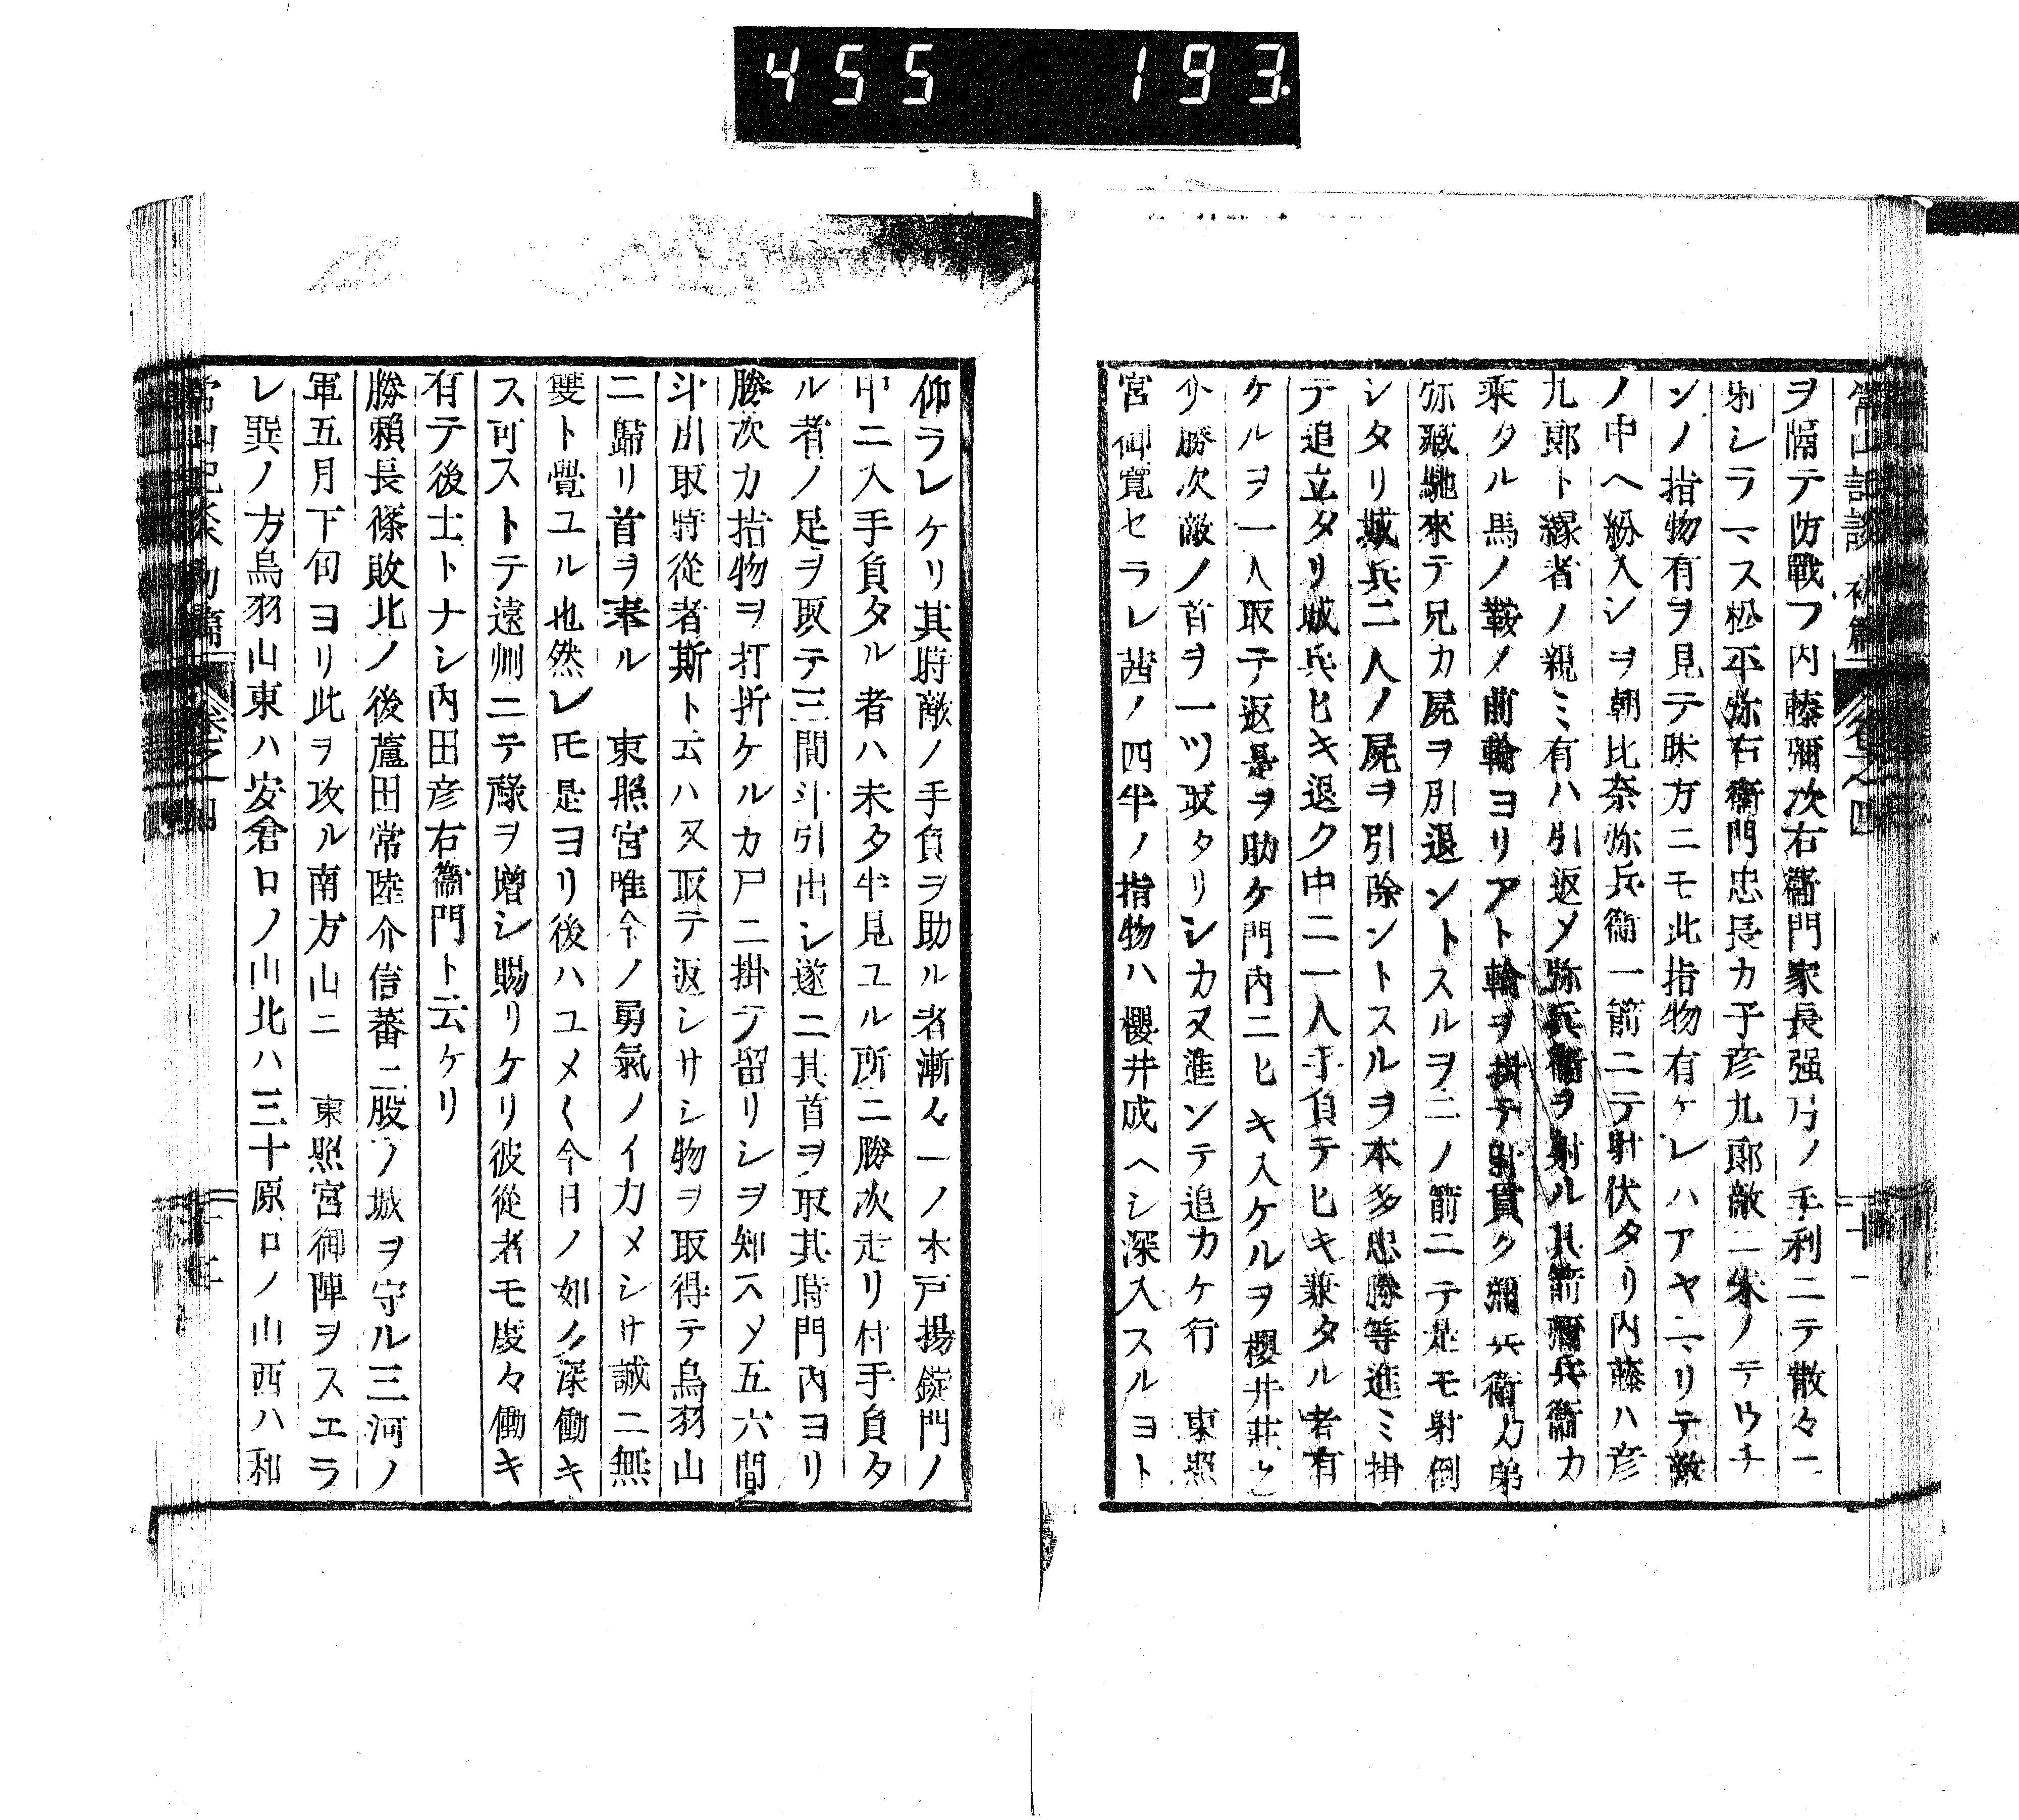 455 193
常山記談 初篇 卷之四 十一
ヲ隔テ防戰フ内藤彌次右衞門家長强弓ノ手利ニテ散々ニ
射シラマス松平弥右衞門忠長カ子彦九郎敵ニ朱ノテウチ
ンノ指物有ヲ見テ味方ニモ此指物有ケレハアヤマリテ敵
ノ中ヘ紛入シヲ朝比奈弥兵衞一箭ニテ射伏タリ内藤ハ彦
九郎ト縁者ノ親ミ有ハ引返メ弥兵衞ヲ射ル其箭彌兵衞カ
乘タル馬ノ鞍ノ前輪ヨリアト輪ヲ掛テ射貫ク彌兵衞カ弟
弥藏馳來テ兄カ屍ヲ引退ントスルヲ二ノ箭ニテ是モ射倒
シタリ城兵二人ノ屍ヲ引除ントスルヲ本多忠勝等進ミ掛
テ追立タリ城兵ヒキ退ク中ニ一人手負テヒキ兼タル者有
ケルヲ一人取テ返是ヲ助ケ門内ニヒキ入ケルヲ櫻井莊之
少勝次敵ノ首ヲ一ツ取タリシカ又進ンテ追カケ行 東照
宮御覽セラレ茜ノ四半ノ指物ハ櫻井成ヘシ深入スルヨト
仰ラレケリ其時敵ノ手負ヲ助ル者漸々一ノ木戸揚錠門ノ
中ニ入手負タル者ハ未タ半見ユル所ニ勝次走リ付手負タ
ル者ノ足ヲ取テ三間斗引出シ遂ニ其首ヲ取其時門内ヨリ
勝次カ指物ヲ打折ケルカ尸ニ掛テ留リシヲ知スメ五六間
斗出取時從者斯ト云ハ又取テ返シサシ物ヲ取得テ鳥羽山
ニ歸リ首ヲ奉ル 東照宮唯今ノ勇氣ノイカメシサ誠ニ無
雙ト覺ユル也然レ𪜈是ヨリ後ハユメ〱今日ノ如ク深働キ
ス可ストテ遠州ニテ祿ヲ增シ賜リケリ彼從者モ度々働キ
有テ後士トナシ内田彦右衞門ト云ケリ
勝賴長篠敗北ノ後蘆田常陸介信蕃二股ノ城ヲ守ル三河ノ
軍五月下旬ヨリ此ヲ攻ル南方山ニ 東照宮御陣ヲスエラ
レ巽ノ方鳥羽山東ハ安倉口ノ山北ハ三十原口ノ山西ハ和
常山記談 初篇 卷之四